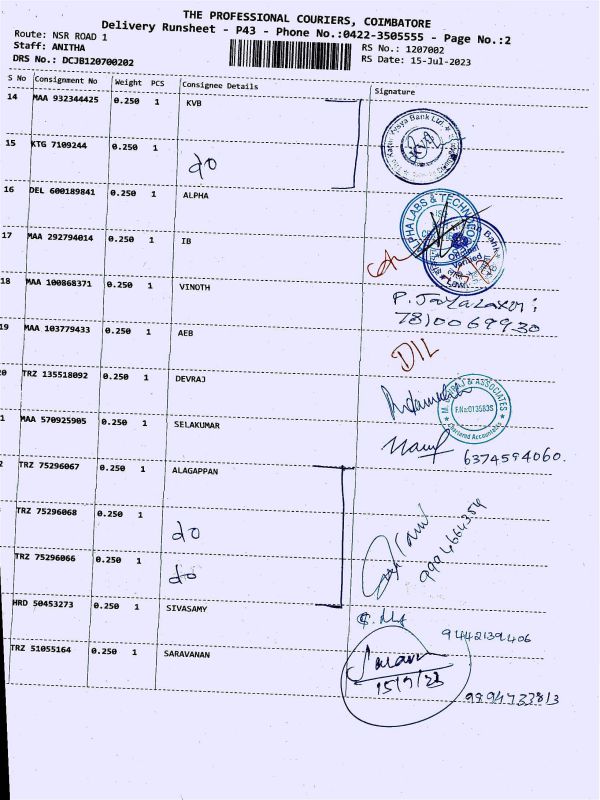 THE PROFESSIONAL COURIERS, COIMBATORE
Delivery Runsheet - P43 - Phone No.:0422-3505555 - Page No.:2
Route: NSR ROAD 1
Staff: ANITHA
DRS No.: DCJB120700202
RS No.: 1207002
RS Date: 15-Jul-2023
S No Consignment No Weight PCS Consignee Details Signature
14 MAA 932344425 0.250 1 KVB
15 KTG 7109244 0.250 1 do
16 DEL 600189841 0.250 1 ALPHA
ALPHA LABS & TECHN
17 MAA 292794014 0.250 1 IB
18 MAA 100868371 0.250 1 VINOTH
7810069930
19 MAA 103779433 0.250 1 AEB
DIL
0 TRZ 135518092 0.250 1 DEVRAJ
& ASSOCIATES
F.No:013583S
Chartered Accountants
1 MAA 570925905 0.250 1 SELAKUMAR
6374594060.
2 TRZ 75296067 0.250 1 ALAGAPPAN
TRZ 75296068 0.250 1 do
9994664354
TRZ 75296066 0.250 1 do
HRD 50453273 0.250 1 SIVASAMY
9442139406
TRZ 51055164 0.250 1 SARAVANAN
15/7/23
9894733813